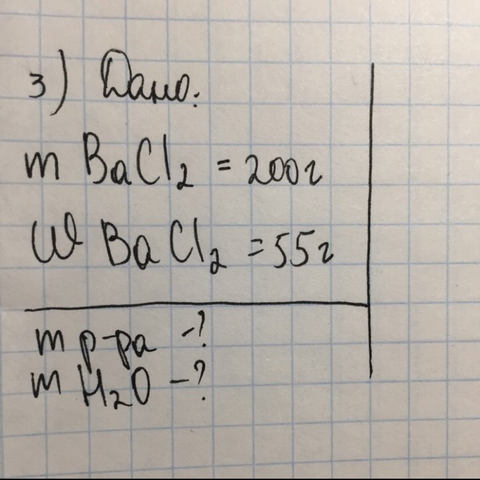 3) Дано:
m BaCl2 = 200г
W BaCl2 = 55г
m р-ра -?
m H2O -?